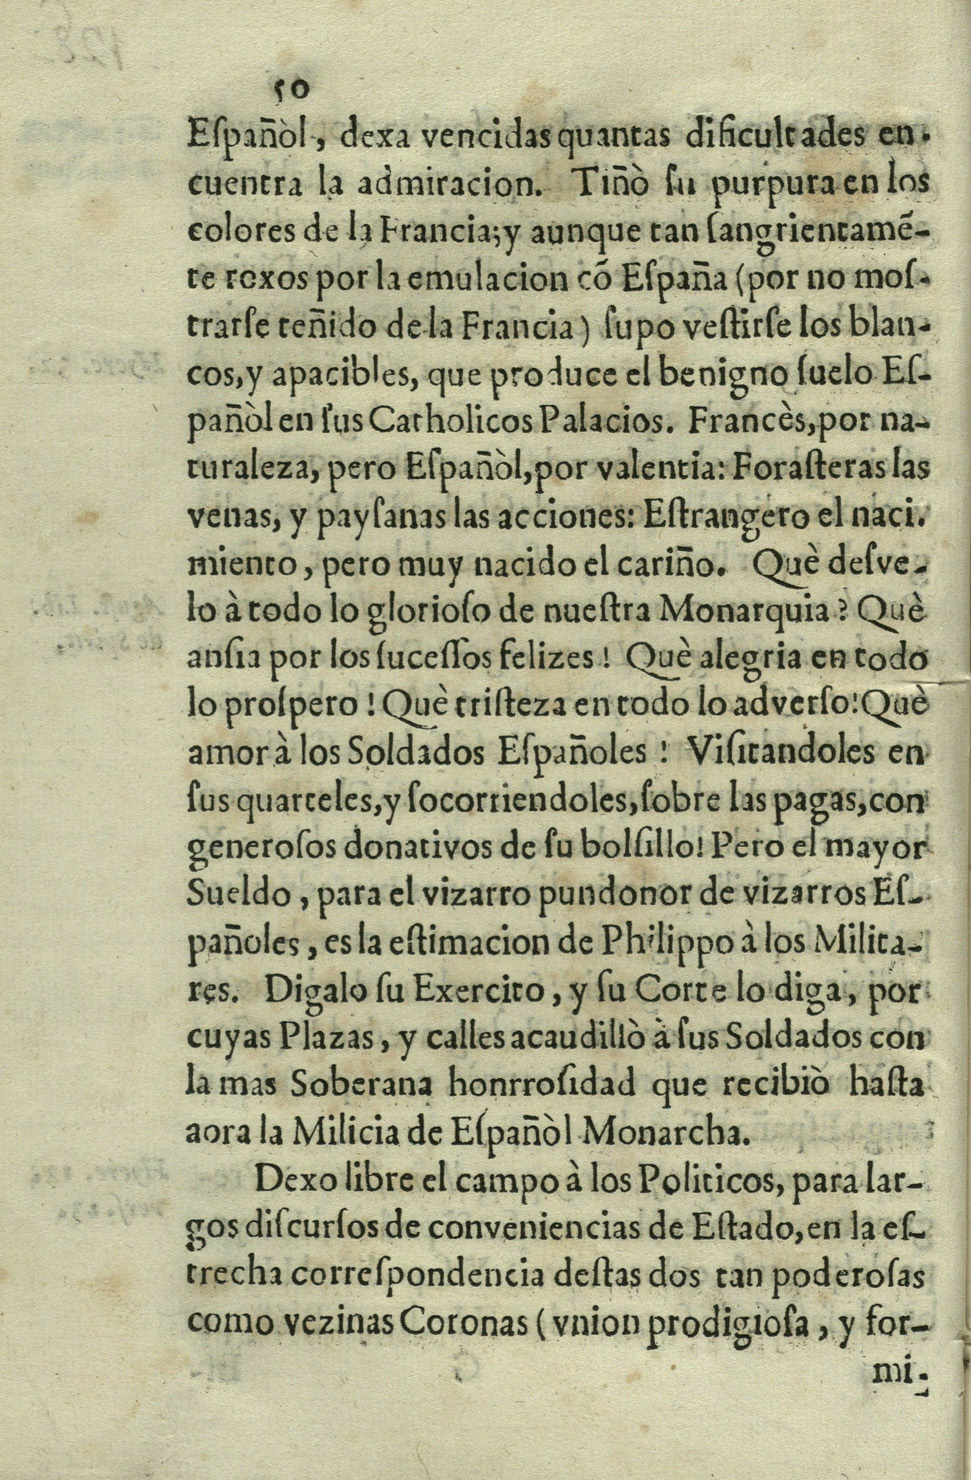 50
Eſpañòl, dexa vencidas quantas dificultades en-
cuentra la admiracion. Tiñò ſu purpura en los
colores de la Francia; y aunque tan ſangrientamẽ-
te roxos por la emulacion cõ Eſpaña (por no moſ-
trarſe teñido de la Francia) ſupo veſtirſe los blan-
cos, y apacibles, que produce el benigno ſuelo Eſ-
pañòl en ſus Catholicos Palacios. Francès, por na-
turaleza, pero Eſpañòl, por valentia: Foraſteras las
venas, y payſanas las acciones: Eſtrangero el naci-
miento, pero muy nacido el cariño. Què deſve-
lo à todo lo glorioſo de nueſtra Monarquia? Què
anſia por los ſuceſſos felizes! Què alegria en todo
lo proſpero! Què triſteza en todo lo adverſo! Què
amor à los Soldados Eſpañoles! Viſitandoles en
ſus quarteles, y ſocorriendoles, ſobre las pagas, con
generoſos donativos de ſu bolſillo! Pero el mayor
Sueldo, para el vizarro pundonor de vizarros Eſ-
pañoles, es la eſtimacion de Philippo à los Milita-
res. Digalo ſu Exercito, y ſu Corte lo diga, por
cuyas Plazas, y calles acaudillò à ſus Soldados con
la mas Soberana honrroſidad que recibiò haſta
aora la Milicia de Eſpañòl Monarcha.
Dexo libre el campo à los Politicos, para lar-
gos diſcurſos de conveniencias de Eſtado, en la eſ-
trecha correſpondencia deſtas dos tan poderoſas
como vezinas Coronas (vnion prodigioſa, y for-
mi-